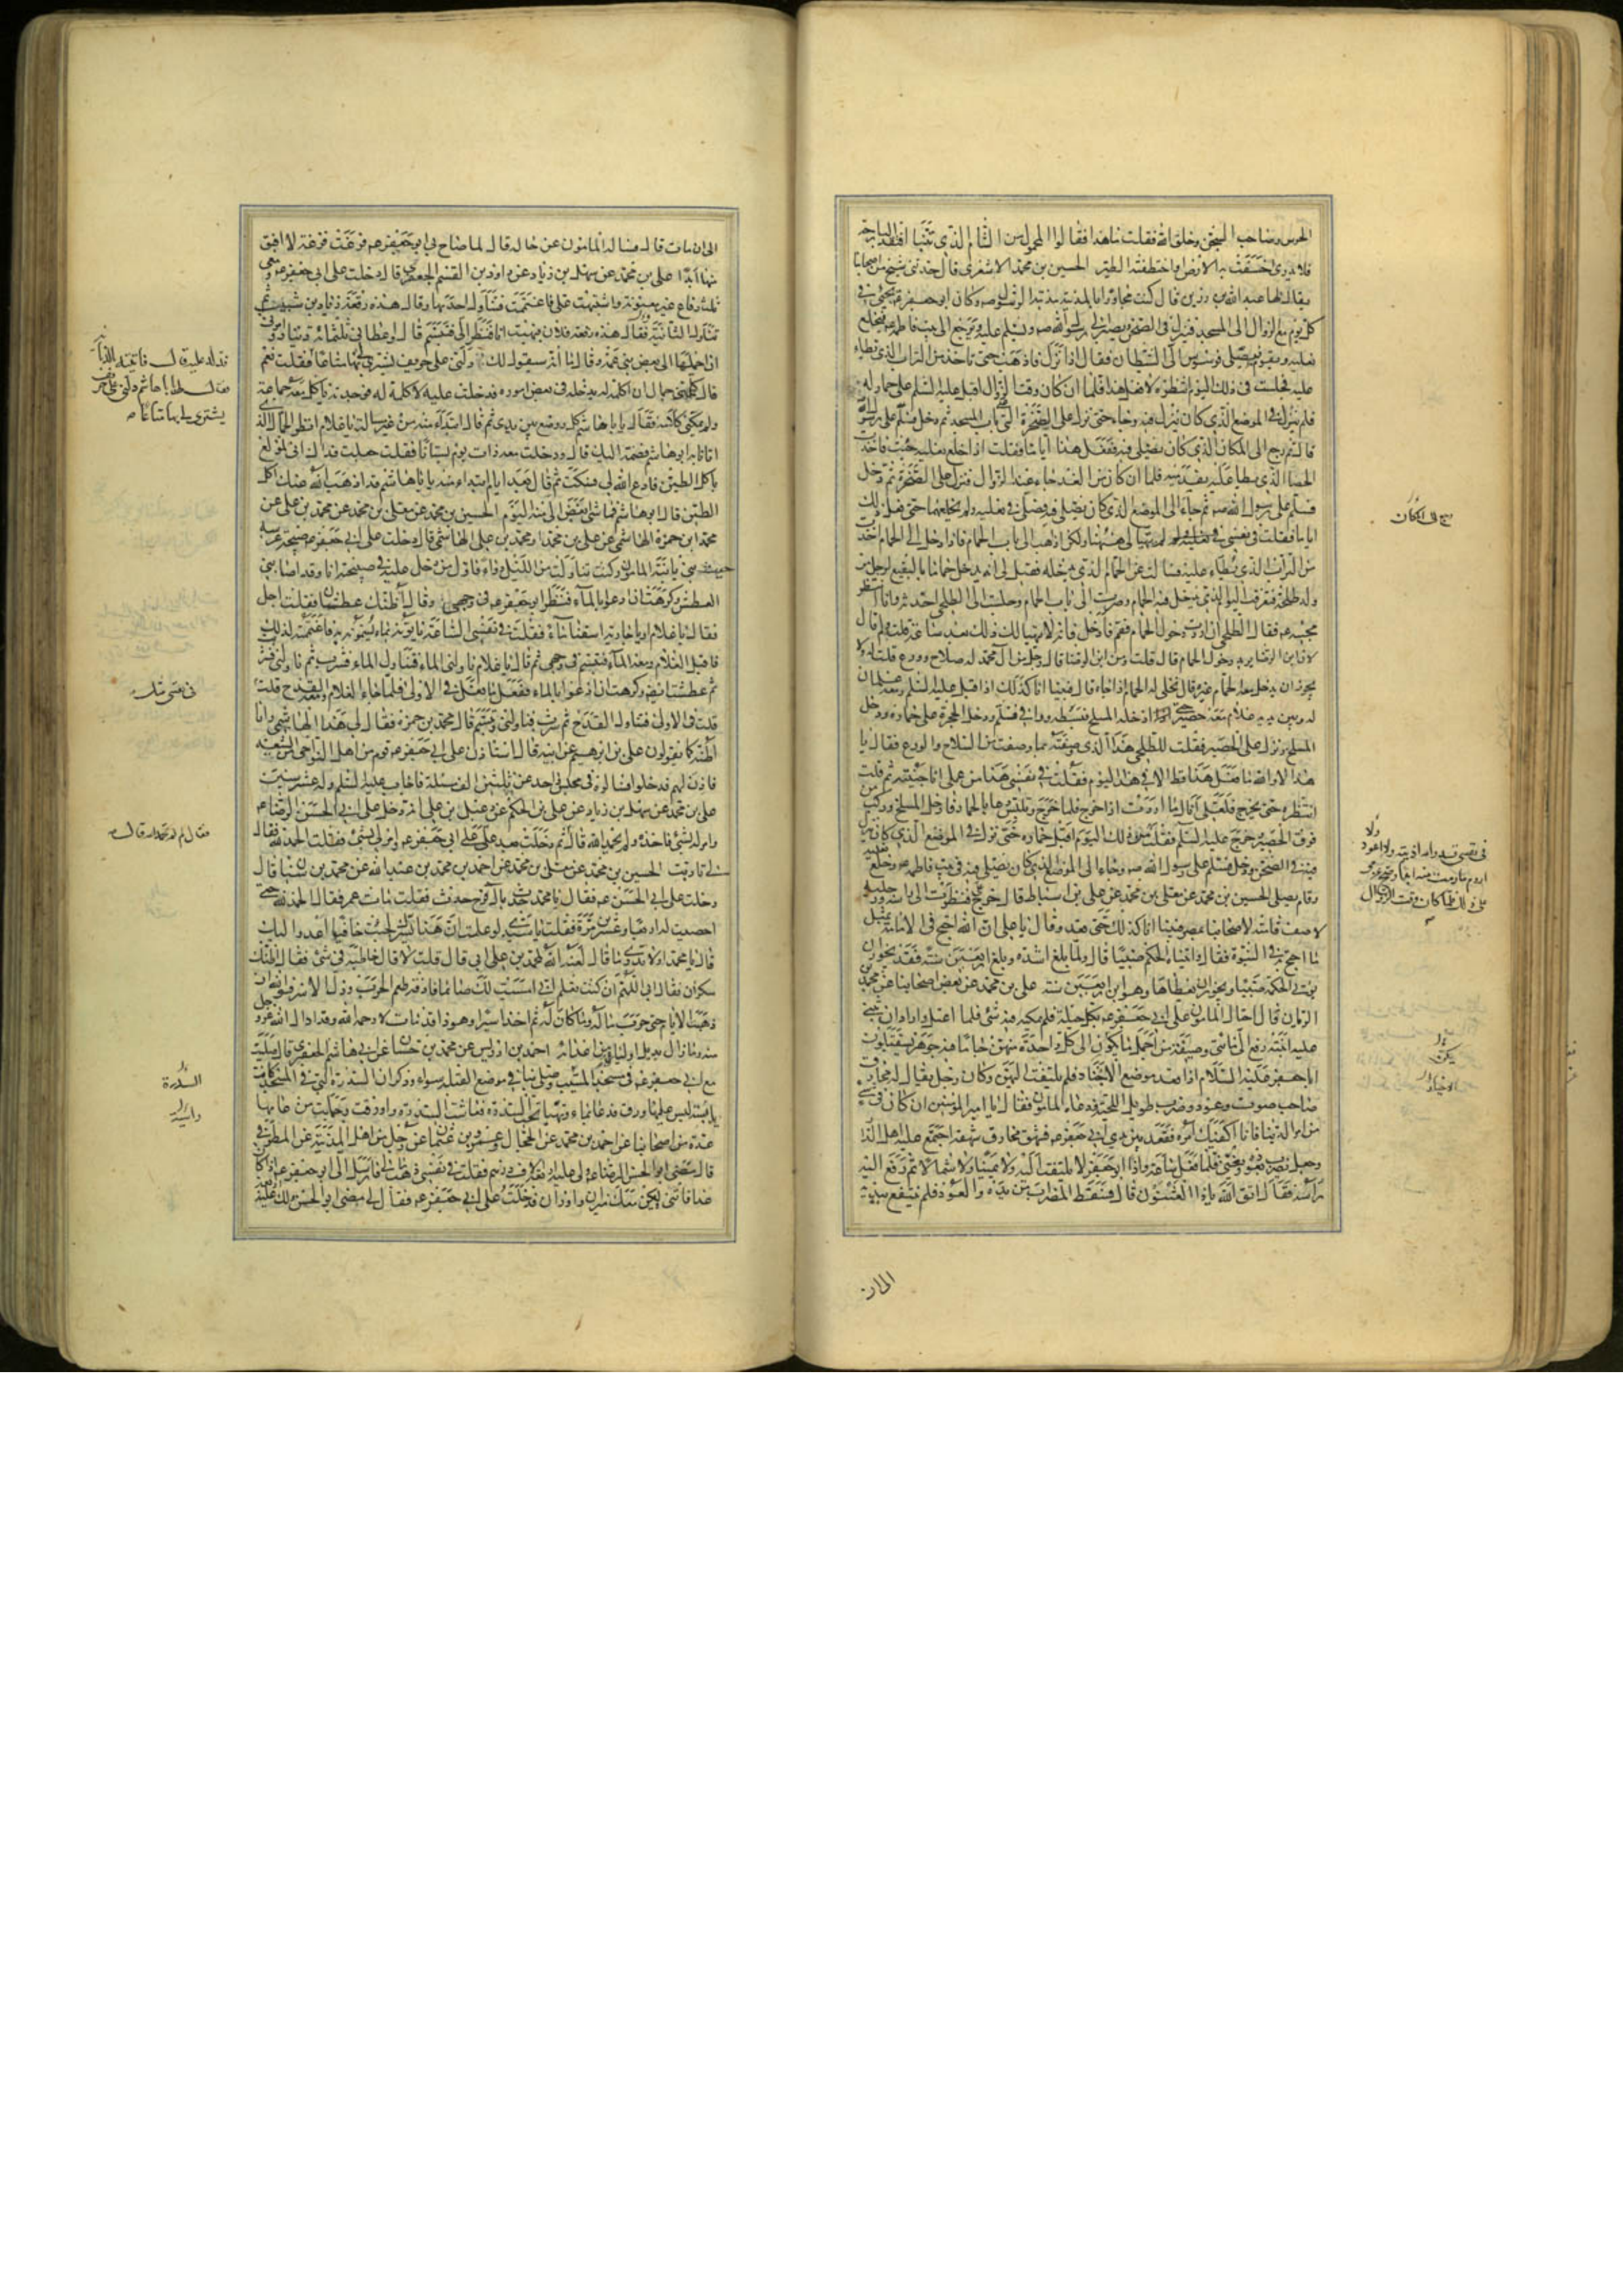 الحرس وصاحب السجن وخلق الله فقلت ما هذا فقالوا المحمول من الشام الذي تنبأ افتقد البارحة
فلا ندري اخسفت به الارض او اختطفته الطير الحسين بن محمد الاشعري قال حدثني شيخ من اصحابنا
يقال له عبد الله بن رزين قال كنت مجاورا بالمدينة مدينة الرسول ص وكان ابو جعفر ع يجيء في
كل يوم مع الزوال الى المسجد فينزل في الصحن ويصير الى رسول الله ص ويسلم عليه ويرجع الى بيت فاطمة ع فيخلع
نعليه ويقوم فيصلي فوسوس الي الشيطان فقال اذا نزل فاذهب حتى تاخذ من التراب الذي يطاء
عليه فجلست في ذلك اليوم انتظره لافعل هذا فلما ان كان وقت الزوال اقبل عليه السلم على حمار له
فلم ينزل في الموضع الذي كان ينزل فيه وجاء حتى نزل على الصخرة التي على باب المسجد ثم دخل فسلم على رسول الله
قال ثم رجع الى المكان الذي كان يصلي فيه ففعل هذا اياما فقلت اذا خلع نعليه جئت فاخذت
الحصا الذي يطا عليه بقدميه فلما ان كان من الغد جاء عند الزوال فنزل على الصخرة ثم دخل
فسلم على رسول الله ص ثم جاء الى الموضع الذي كان يصلي فيه فصلى في نعليه ولم يخلعهما حتى فعل ذلك
اياما فقلت في نفسي لم يتهيأ لي ههنا ولكن اذهب الى باب الحمام فاذا دخل الى الحمام اخذت
من التراب الذي يطاء عليه فسالت عن الحمام الذي يدخله فقيل لي انه يدخل حماما بالبقيع لرجل من
ولد طلحة فتعرفت اليوم الذي يدخل فيه الحمام وصرت الى باب الحمام وجلست الى الطلحي احدثه وانا انتظر
مجيئه ع فقال الطلحي ان اردت دخول الحمام فقم فادخل فانه لا يتهيا لك ذلك بعد ساعة قلت ولم قال
لان ابن الرضا يريد دخول الحمام قال قلت ومن ابن الرضا قال رجل من ال محمد له صلاح وورع قلت له ولا
يجوز ان يدخل معه الحمام غيره قال نخلي له الحمام اذا جاء قال فبينا انا كذلك اذ اقبل عليه السلم ومعه غلمان
له وبين يديه غلام معه حصير حتى ادخله المسلخ فبسطه ووافى فسلم ودخل الحجرة على حماره ودخل
المسلخ ونزل على الحصير فقلت للطلحي هذا الذي وصفته بما وصفت من الصلاح والورع فقال يا
هذا لا والله ما فعل هذا قط الا في هذا اليوم فقلت في نفسي هذا من عملي انا جنيته ثم قلت
انتظره حتى يخرج فلعلي انال ما اردت اذا خرج فلما خرج وتلبس دعا بالحمار فادخل المسلخ وركب
فوق الحصير وخرج عليه السلم فقلت ذلك اليوم اقبل على حماره حتى نزل في الموضع الذي كان ينزل
فيه في الصحن فدخل فسلم على رسول الله ص وجاء الى الموضع الذي كان يصلي فيه في بيت فاطمة ع وخلع نعليه
وقام يصلي الحسين بن محمد عن معلى بن محمد عن علي بن اسباط قال خرج ع علي فنظرت الى راسه ورجليه
لاصف قامته لاصحابنا بمصر فبينا انا كذلك حتى قعد وقال يا علي ان الله احتج في الامامة بمثل
ما احتج في النبوة فقال واتيناه الحكم صبيا قال ولما بلغ اشده وبلغ اربعين سنة فقد يجوز ان
يؤتى الحكم صبيا ويجوز ان يعطاها وهو ابن اربعين سنة علي بن محمد عن بعض اصحابنا عن محمد بن
الريان قال احتال المامون على ابي جعفر ع بكل حيلة فلم يمكنه فيه شيء فلما اعتل واراد ان يبني
عليه ابنته دفع الي مائتي وصيفة من اجمل ما يكون الى كل واحدة منهن جاما فيه جوهر يستقبلون
ابا جعفر عليه السلام اذا قعد موضع الاخيار فلم يلتفت اليهن وكان رجل يقال له مخارق
صاحب صوت وعود وضرب طويل اللحية فدعاه المامون فقال يا امير المؤمنين ان كان في شيء
من امر الدنيا فانا اكفيك امره فقعد بين يدي ابي جعفر ع فشهق مخارق شهقة اجتمع عليه اهل الدار
وجعل يضرب بعوده ويغني فلما فعل ساعة واذا ابو جعفر لا يلتفت اليه ولا يمينا ولا شمالا ثم رفع اليه
راسه فقال اتق الله يا ذا العثنون قال فسقط المضراب من يده والعود فلم ينتفع بيديه
الى ان
الى ان مات قال فساله المامون عن حاله قال لما صاح بي ابو جعفر ع فزعت فزعة لا افيق
منها ابدا علي بن محمد عن سهل بن زياد عن داود بن القسم الجعفري قال دخلت على ابي جعفر ع ومعي
ثلث رقاع غير معنونة واشتبهت علي فاغتممت فتناول احديهما وقال هذه رقعة زياد بن شبيب ثم
تناول الثانية فقال هذه رقعة فلان فبهت انا فنظر الي فتبسم قال واعطاني ثلثمائة دينار وامرني
ان احملها الى بعض بني عمه وقال اما انه سيقول لك دلني على حريف يشتري لي بها متاعا فقلت نعم
قال وكلمني جمال ان اكلمه له يدخله في بعض اموره فدخلت عليه لاكلمه له فوجدته ياكل ومعه جماعة
ولم يمكني كلامه فقال يا ابا هاشم كل ووضع بين يدي ثم قال ابتداء منه من غير مسالة يا غلام انظر الجمال الذي
اتانا به ابو هاشم فضمه اليك قال ودخلت معه ذات يوم بستانا فقلت جعلت فداك اني لمولع
باكل الطين فادع الله لي فسكت ثم قال بعد ايام ابتداء منه يا ابا هاشم قد اذهب الله عنك اكل
الطين قال ابو هاشم فما شيء ابغض الي منه اليوم الحسين بن محمد عن معلى بن محمد عن محمد بن علي عن
محمد بن حمزة الهاشمي عن علي بن محمد او محمد بن علي الهاشمي قال دخلت على ابي جعفر ع صبيحة عرسه
حيث بنى بابنة المامون وكنت تناولت من الليل دواء فاول من دخل عليه في صبيحته انا وقد اصابني
العطش وكرهت ان ادعو بالماء فنظر ابو جعفر ع في وجهي وقال اظنك عطشان فقلت اجل
فقال يا غلام او يا جارية اسقنا ماء فقلت في نفسي الساعة ياتونه بماء يسمونه به فاغتممت لذلك
فاقبل الغلام ومعه الماء فتبسم في وجهي ثم قال يا غلام ناولني الماء فتناول الماء فشرب ثم ناولني فشربت
ثم عطشت ايضا وكرهت ان ادعو بالماء ففعل ما فعل في الاولى فلما جاء الغلام ومعه القدح قلت
قلت في الاولى فتناول القدح ثم شرب فناولني وتبسم قال محمد بن حمزة فقال لي هذا الهاشمي وانا
اظنه كما يقولون علي بن ابرهيم عن ابيه قال استاذن على ابي جعفر ع قوم من اهل النواحي من الشيعة
فاذن لهم فدخلوا فسالوه في مجلس واحد عن ثلثين الف مسئلة فاجاب عليه السلم وله عشر سنين
علي بن محمد عن سهل بن زياد عن علي بن الحكم عن دعبل بن علي انه دخل على ابي الحسن الرضا ع
وامر له بشيء فاخذه ولم يحمد الله قال ثم دخلت بعد على ابي جعفر ع وامر لي بشيء فقلت الحمد لله فقال
لي تادبت الحسين بن محمد عن معلى بن محمد عن احمد بن محمد بن عبد الله عن محمد بن سنان قال
دخلت على ابي الحسن ع فقال يا محمد حدث بال فرج حدث فقلت مات عمر فقال الحمد لله حتى
احصيت له اربعا وعشرين مرة فقلت يا سيدي لو علمت ان هذا يسرك لجئت حافيا اعدو اليك
قال يا محمد اولا تدري ما قال لعنه الله لمحمد بن علي ابي قال قلت لا قال خاطبه في شيء فقال اظنك
سكران فقال ابي اللهم ان كنت تعلم اني امسيت لك صائما فاذقه طعم الحرب وذل الاسر فوالله ان
ذهبت الايام حتى حرب ماله وما كان له ثم اخذ اسيرا وهو ذا قد مات لا رحمه الله وقد ادال الله عز وجل
منه وما زال يديل اولياءه من اعدائه احمد بن ادريس عن محمد بن حسان عن ابي هاشم الجعفري قال صليت
مع ابي جعفر ع في مسجد المسيب وصلى بنا في موضع القبلة سواء وذكر ان السدرة التي في المسجد كانت
يابسة ليس عليها ورق فدعا بماء وتهيا تحت السدرة فعاشت السدرة واورقت وحملت من عامها
عدة من اصحابنا عن احمد بن محمد عن الحجال وعمرو بن عثمان عن رجل من اهل المدينة عن المطرفي
قال مضى ابو الحسن الرضا ع ولي عليه اربعة الاف درهم فقلت في نفسي ذهب مالي فارسل الي ابو جعفر ع اذا كان
غدا فاتني وليكن معك ميزان واوزان فدخلت على ابي جعفر ع فقال لي مضى ابو الحسن ولك عليه